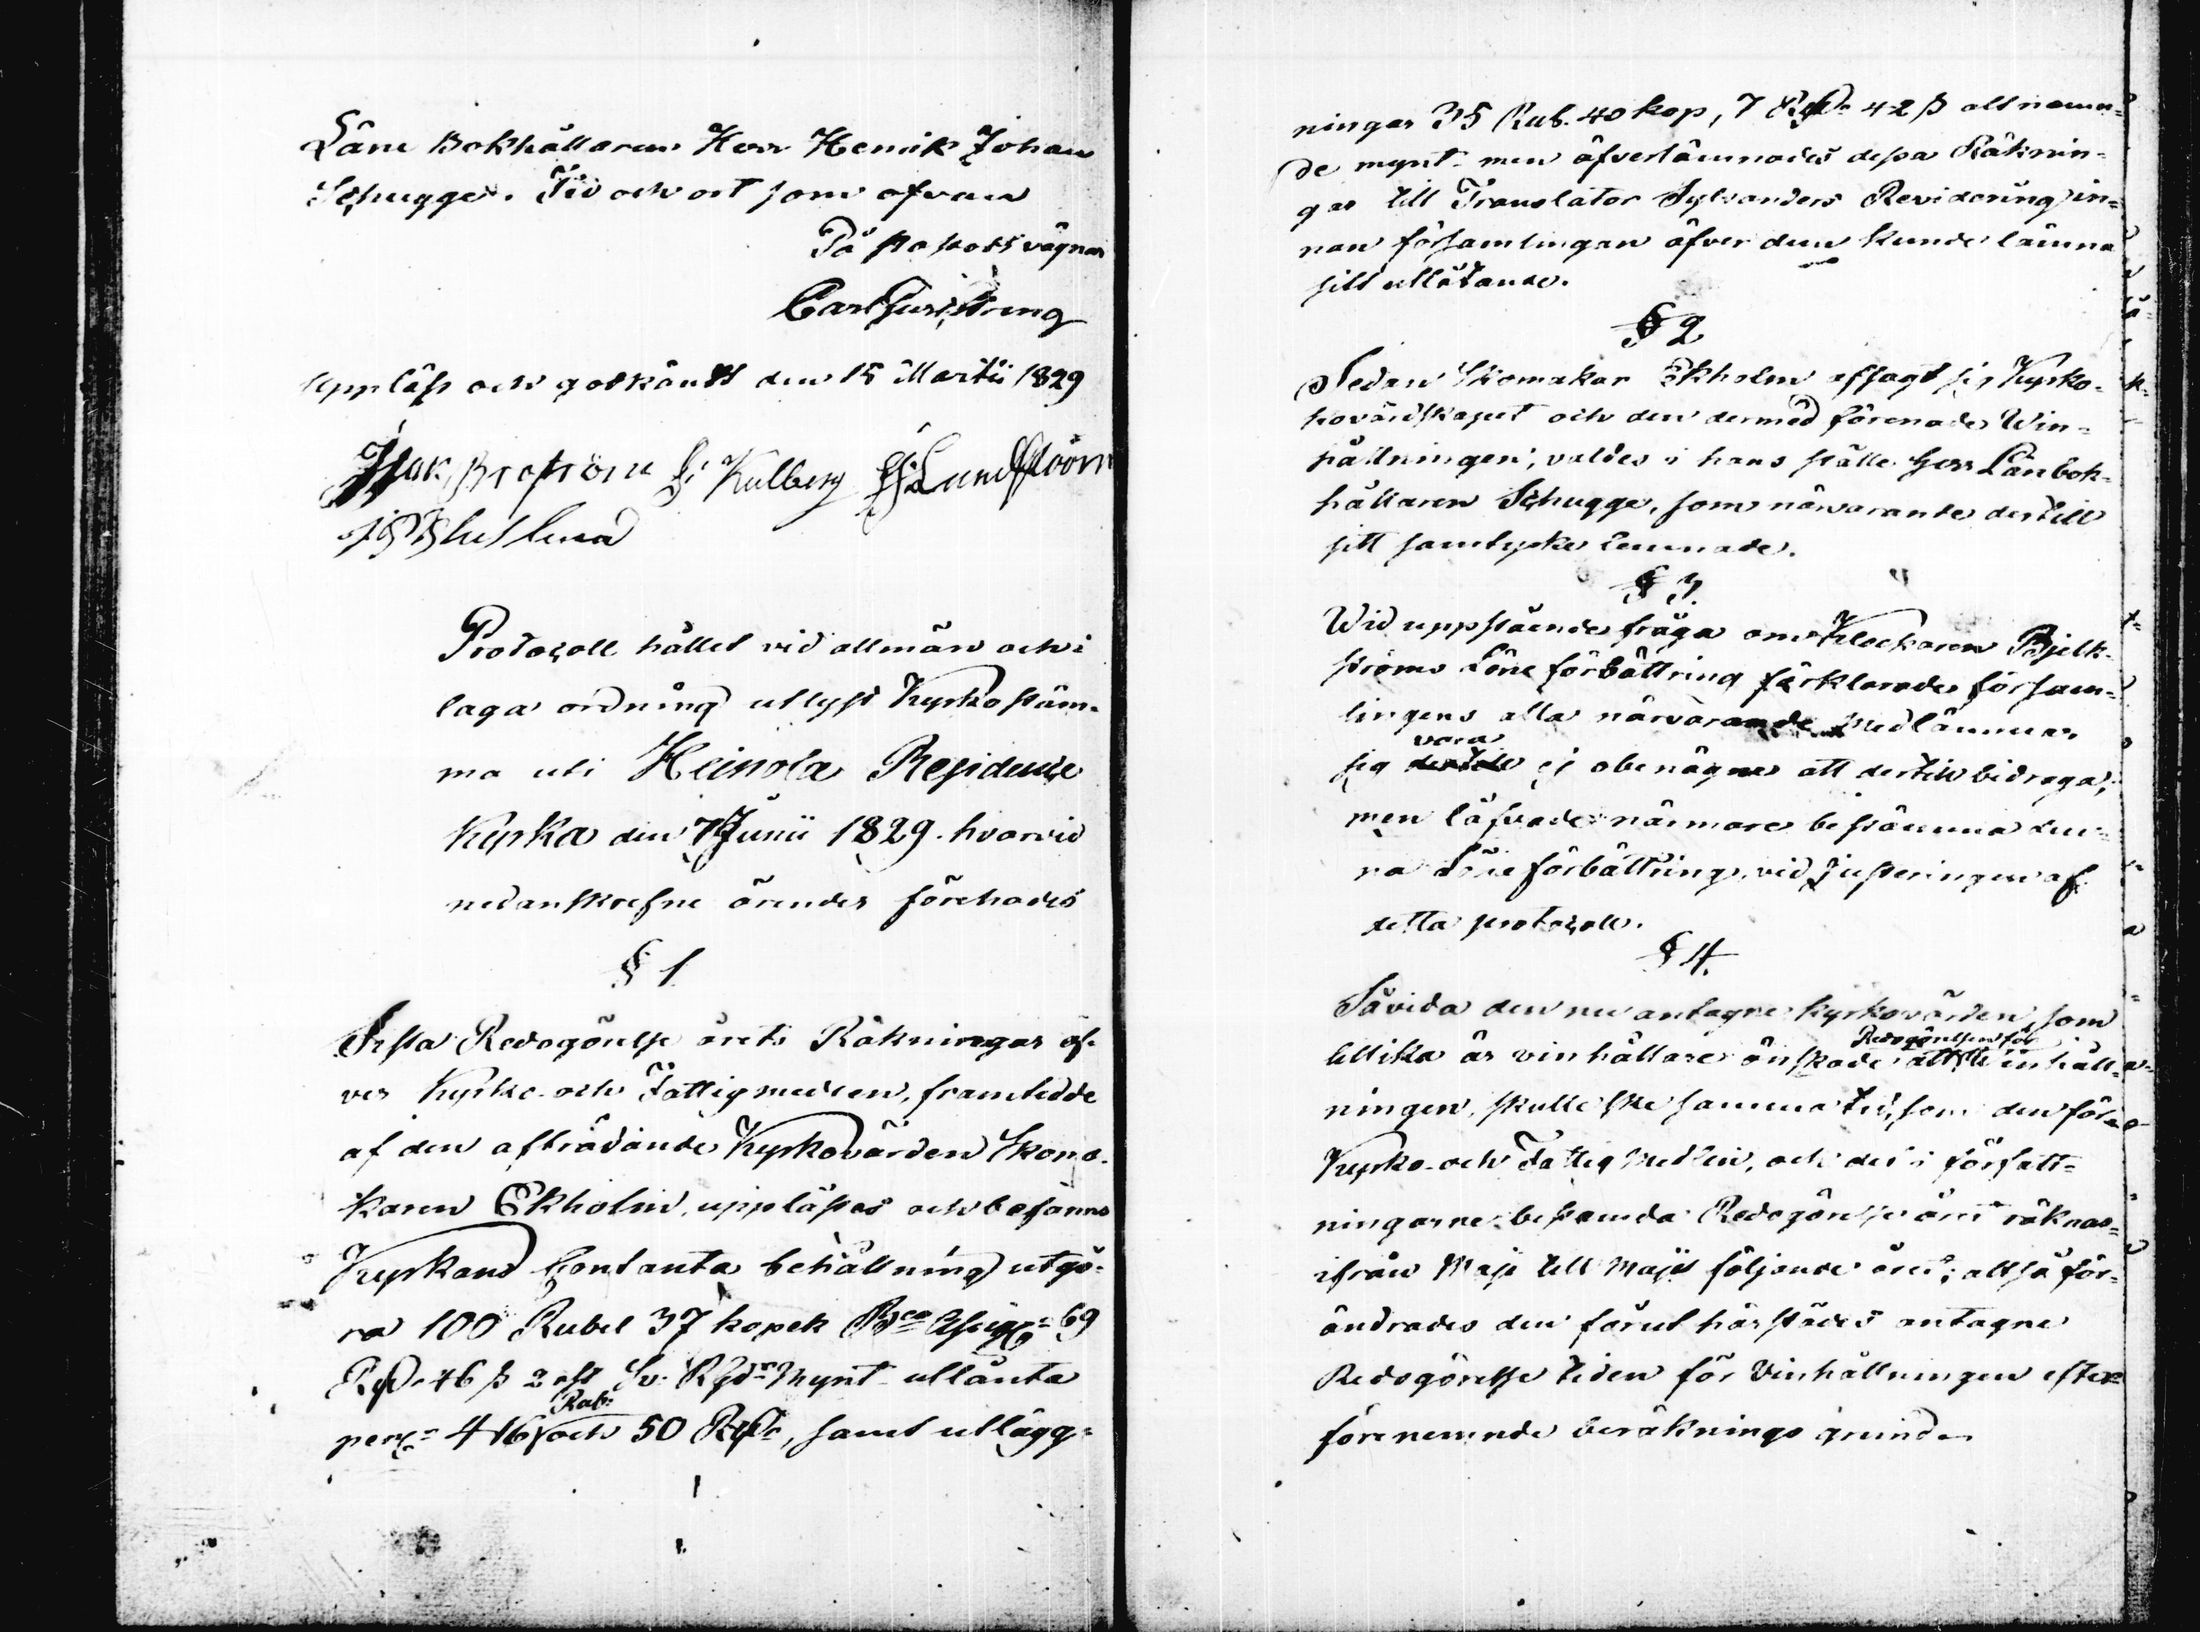 Läne Bokhållaren Herr Henrik Johan
Schugge. Tid och ort som ofvan
På protokolls vägnar
Carl Gust. Streng
Uppläst och godkändt den 15 Martii 1829
Isak Broström Kulberg Lundström
Protocoll hållet vid allmän och i
laga ordning utlyst Kyrkostäm-
ma uti Heinola Residence
Kyrka den 7 Junii 1829. hvarvid
nedanskrefne ärender förehades
§ 1
Sista Redogörelse årets Räkningar öf-
ver Kyrko- och Fattigmedlen, framtedde
af den afträdande Kyrkovärden Skoma-
karen Ekholm, upplästes och befanns
Kyrkans Contanta behållning utgö-
ra 100 Rubel 37 kopek Bco Assign: 69
RDr 46 ß 2 rst Sv. Rgds Mynt utlånta
Rub:
penr: 416 och 50 RDr, samt utlägg-
ningar 35 Rub. 40 kop, 7 RDr 42 ß altnämn-
de mynt men öfverlämnades dessa Räknin-
gar till Translator Sylvanders Revidering in-
nan församlingen öfver dem kunde lämna
sitt utlåtande.
§ 2
Sedan Skomakar Ekholm afsagt sig Kyrko-
kovärdskapet och den dermed förenade Win-
hållningen, valdes i hans ställe Herr Länbok-
hållaren Schugge, som närvarande dertill
sitt samtycke lemnade.
§ 3
Wid uppstående fråga om Klockaren Bjelk-
ströms Löne förbättring förklarade försam-
lingens alla närvarande medlämmar
vara
sig dertill ej obenägne att dertill bidraga,
men låfvade närmare bestämma den-
na Löneförbättring, vid justeringen af
detta protocoll.
§ 4
Såvida den nu antagne kyrkovärden, som
Redogörelsen för
tillika är vinhållare önskade att vinhåll-
ningen, skulle ske samma tid, som den för
Kyrko- och Fattig Medlen, och det i författ-
ningarne bestämda Redogörelse året räknas
ifrån Maji till Maji följande året; altså för-
ändrades den förut härstädes antagne
Redogörelse tiden för Vinhållningen efter
förenemnde beräknings grund.